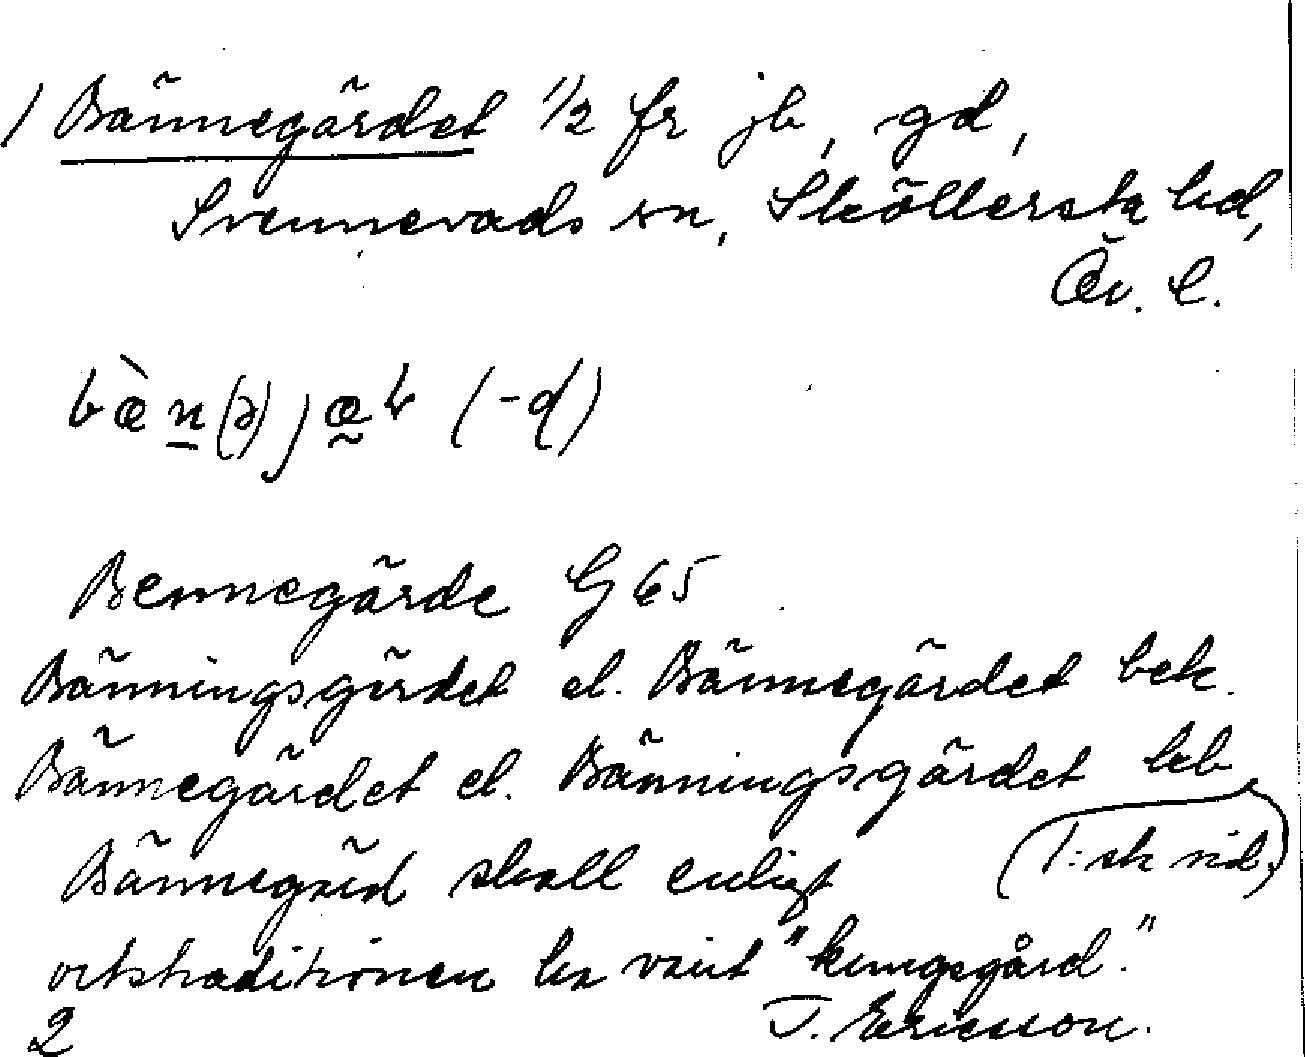 1 Bännegärdet 1/2 fr jb, gd,
Svennevads sn, Sköllersta hd,
Ör. l.
bæ̀n(ə)jæ
Bennegärde G 65
Bänningsgärdet el. Bännegärdet bek.
Bännegärdet el. Bänningsgärdet hb
Bännegärd skall enligt (1:sk vid)
ortstraditionen ha varit "kungsgård".
2 T. Ericsson.